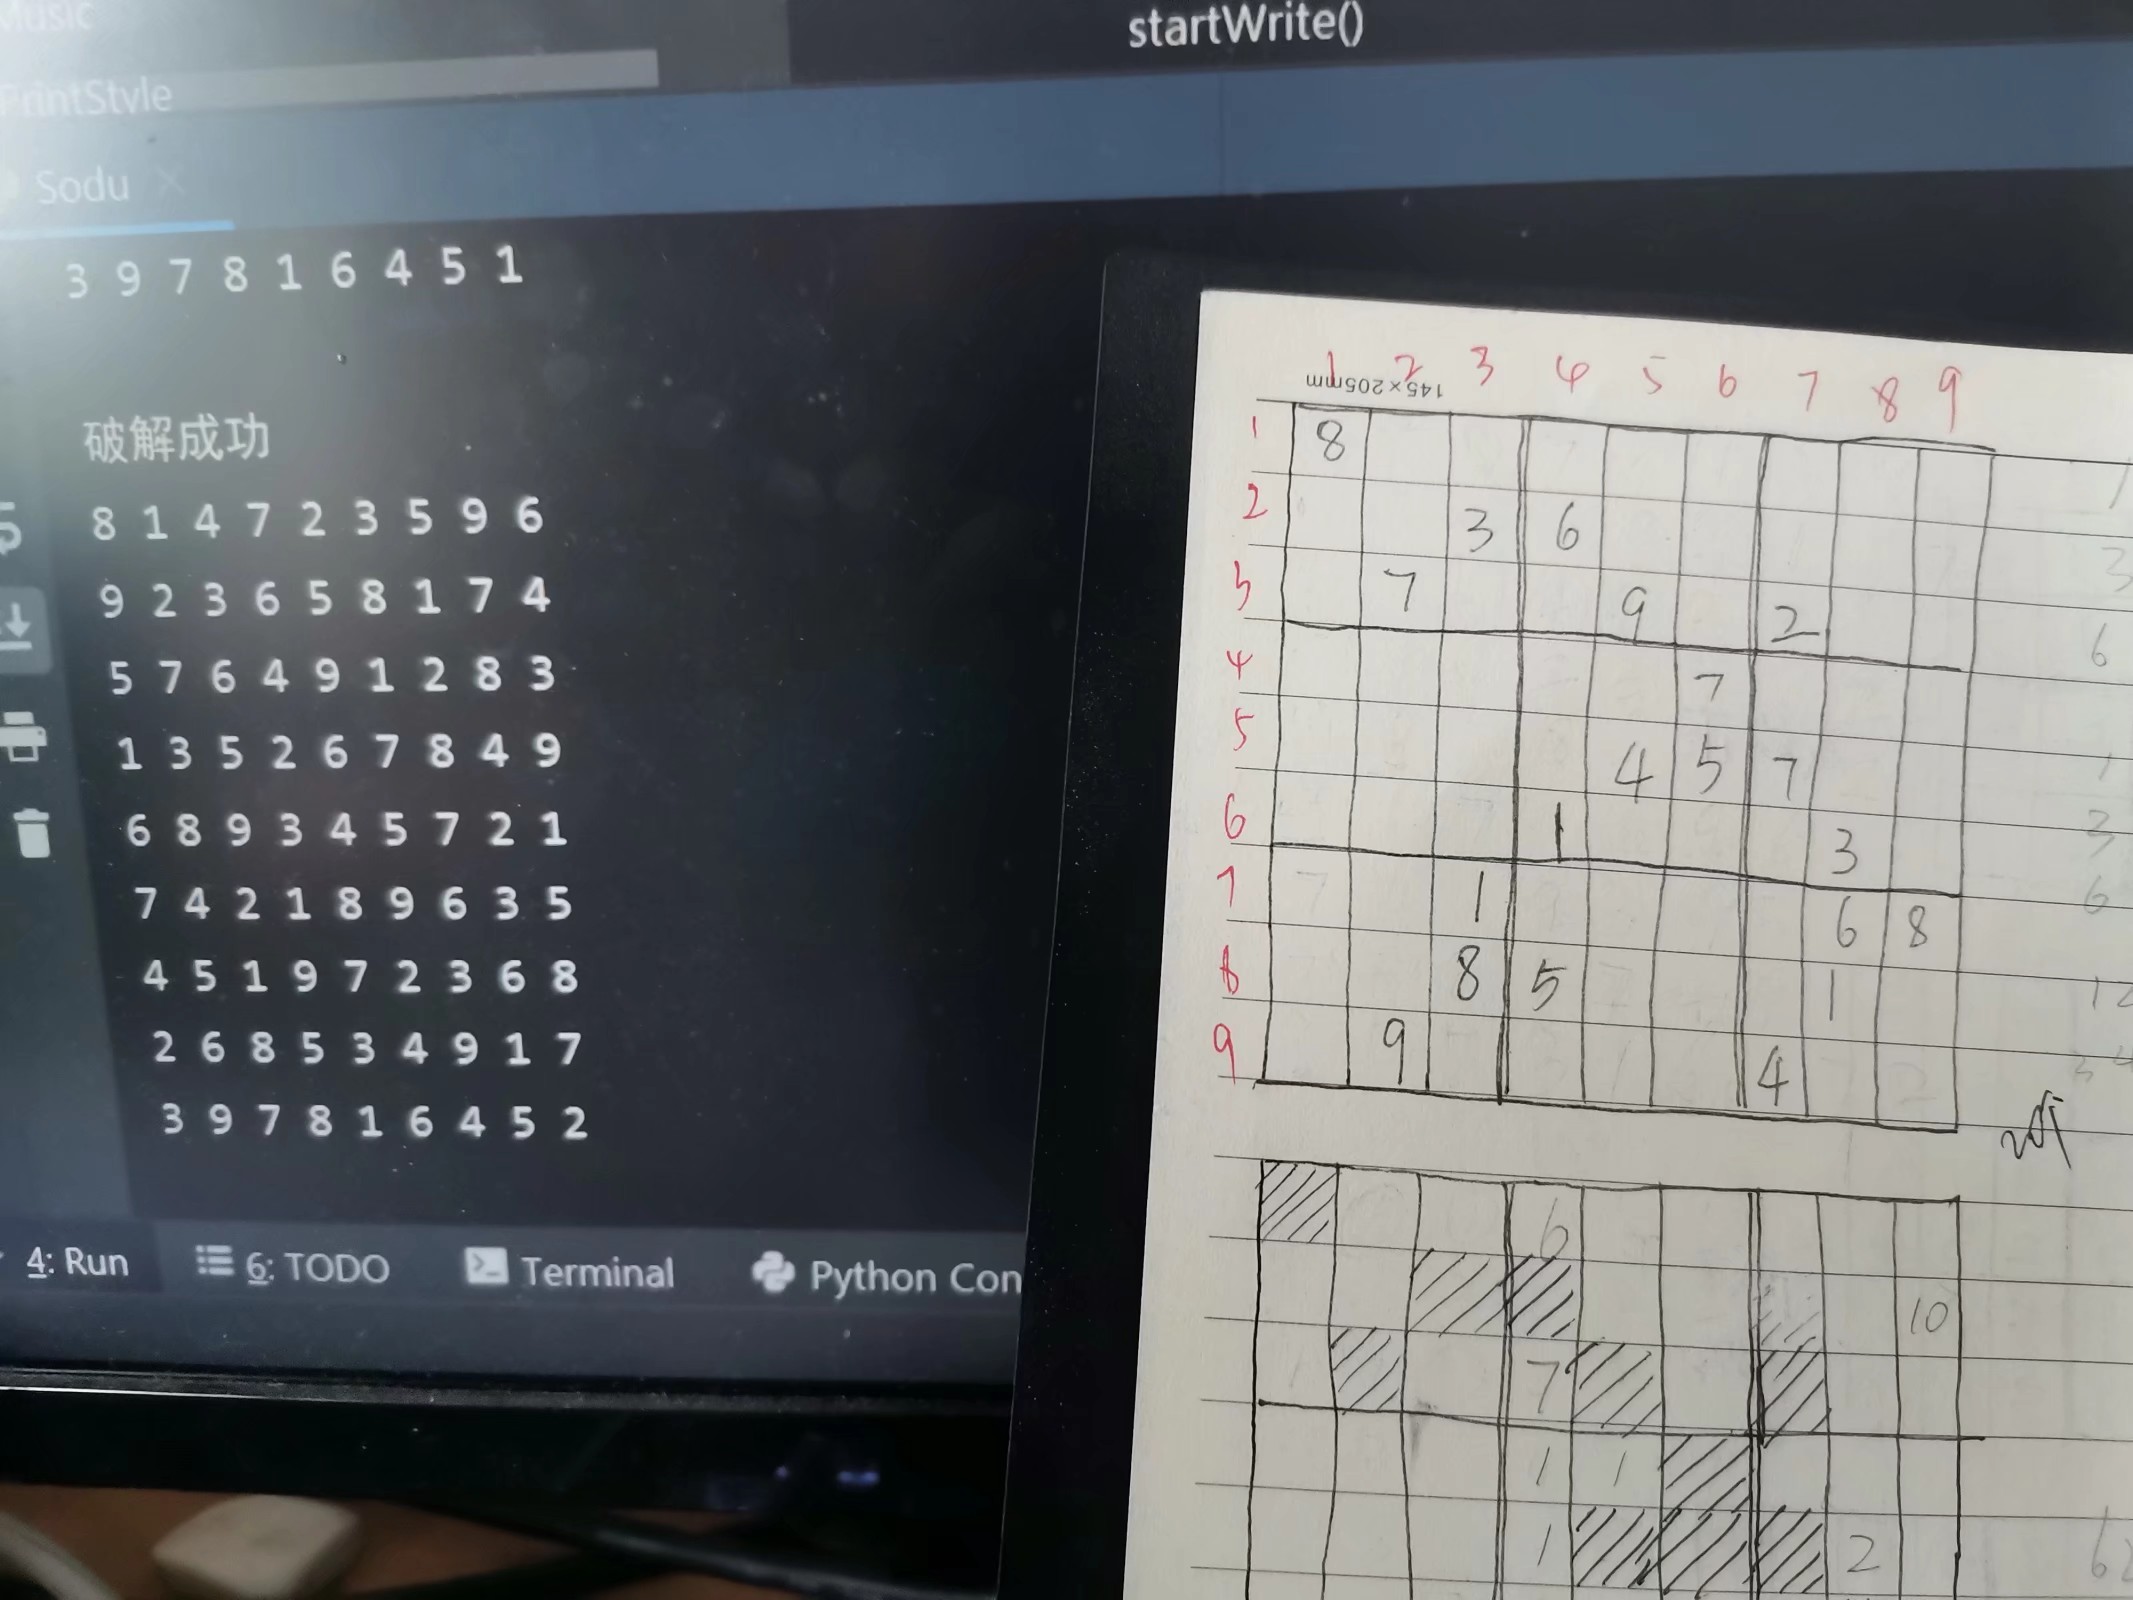 startWrite()
Music
PrintStyle
Sodu
3 9 7 8 1 6 4 5 1
破解成功
8 1 4 7 2 3 5 9 6
9 2 3 6 5 8 1 7 4
5 7 6 4 9 1 2 8 3
1 3 5 2 6 7 8 4 9
6 8 9 3 4 5 7 2 1
7 4 2 1 8 9 6 3 5
4 5 1 9 7 2 3 6 8
2 6 8 5 3 4 9 1 7
3 9 7 8 1 6 4 5 2
4: Run 6: TODO Terminal Python Con
1 2 3 4 5 6 7 8 9
145×205mm
1 8
2 3 6
3 7 9 2
4 7
5 4 5 7
6 1 3
7 1 6 8
8 8 5 1
9 9 4
6
10
7
1 1
1 2